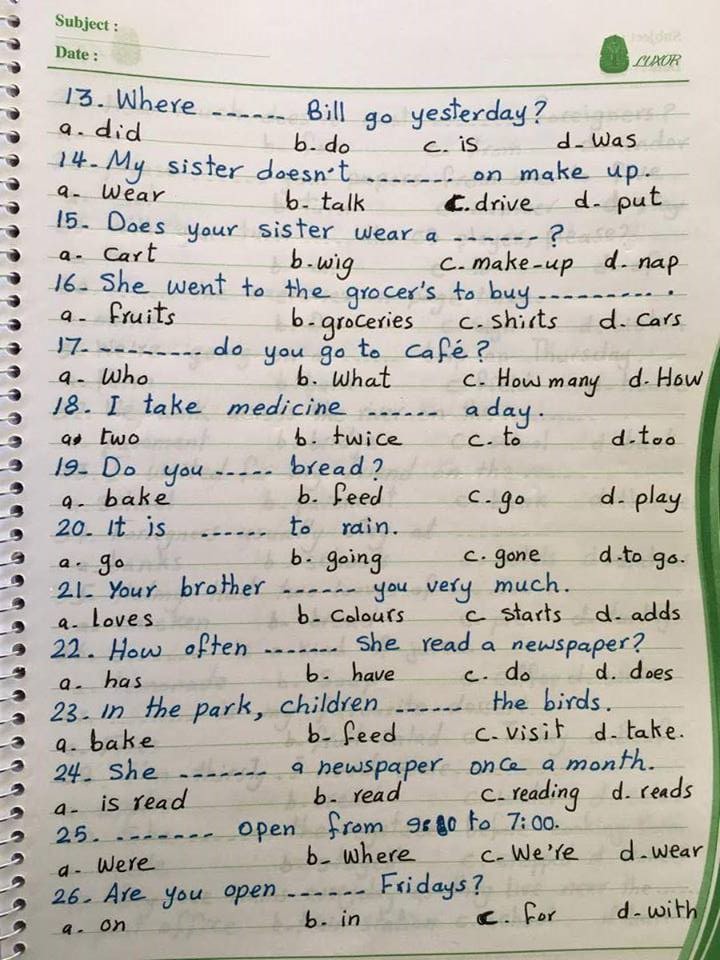 Subject :
Date :
LUXOR
13. Where ------ Bill go yesterday?
a. did b. do c. is d. was
14. My sister doesn't ------- on make up.
a. wear b. talk c. drive d. put
15. Does your sister wear a ------ ?
a. cart b. wig c. make-up d. nap
16. She went to the grocer's to buy ---------- .
a. fruits b. groceries c. shirts d. cars
17. -------- do you go to café?
a. Who b. What c. How many d. How
18. I take medicine ------ a day.
a. two b. twice c. to d. too
19. Do you ----- bread?
a. bake b. feed c. go d. play
20. It is ------ to rain.
a. go b. going c. gone d. to go.
21. Your brother ------ you very much.
a. loves b. colours c. starts d. adds
22. How often ------- she read a newspaper?
a. has b. have c. do d. does
23. in the park, children ------ the birds.
a. bake b. feed c. visit d. take.
24. She ------- a newspaper once a month.
a. is read b. read c. reading d. reads
25. -------- open from to 7:00.
a. were b. where c. We're d. wear
26. Are you open ------ Fridays?
a. on b. in c. for d. with